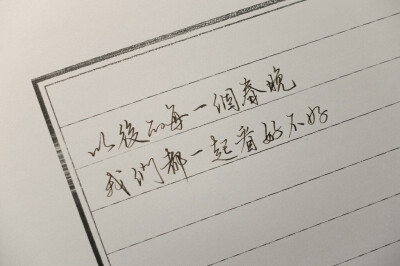 以後的每一個春晚
我們都一起看好不好